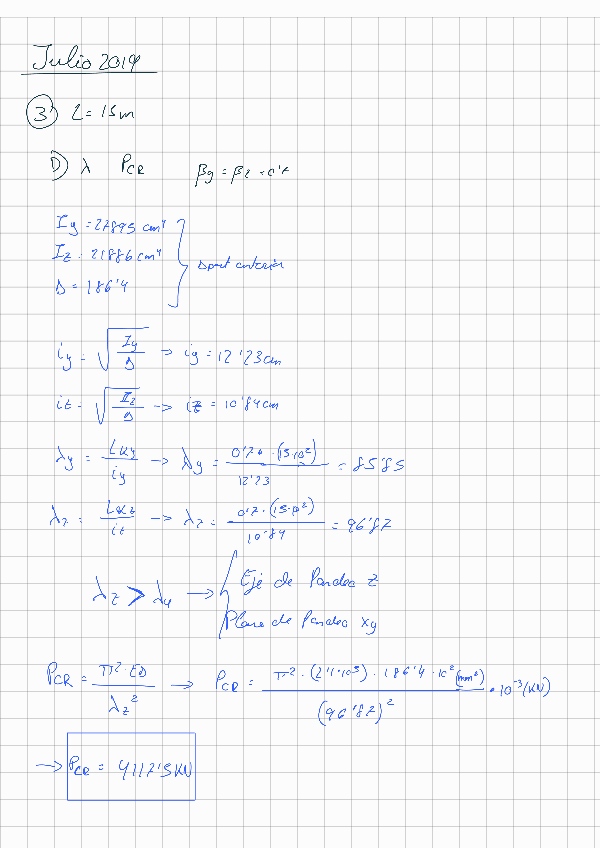 Julio 2019
3) L = 15m
D) λ PCR βy = βz = 0'7
Iy = 27895 cm⁴
Iz = 21886 cm⁴
A = 186'4
apart anterior
iy = √(Iy/A) → iy = 12'23cm
iz = √(Iz/A) → iz = 10'84cm
λy = Lky/iy → λy = 0'70 · (15·10²)/12'23 = 85'85
λz = Lkz/iz → λz = 0'7 · (15·10²)/10'84 = 96'87
λz > λy → Eje de Pandeo z
Plano de Pandeo xy
PCR = π²·EA/λz² → PCR = π² · (2'1·10⁵) · 186'4 · 10² (mm²)/(96'87)² · 10⁻³ (KN)
→ PCR = 4117'5 KN